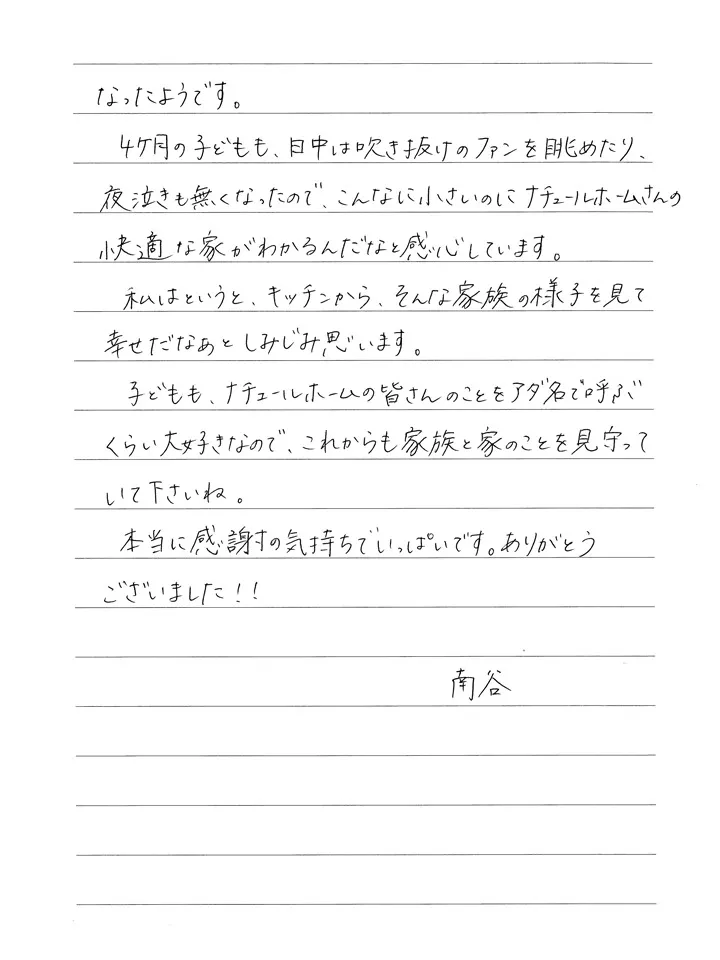 なったようです。
4ケ月の子どもも、日中は吹き抜けのファンを眺めたり、
夜泣きも無くなったので、こんなに小さいのにナチュールホームさんの
快適な家がわかるんだなと感心しています。
私はというと、キッチンから、そんな家族の様子を見て
幸せだなぁとしみじみ思います。
子どもも、ナチュールホームの皆さんのことをアダ名で呼ぶ
くらい大好きなので、これからも家族と家のことを見守って
いて下さいね。
本当に感謝の気持ちでいっぱいです。ありがとう
ございました!!
南谷